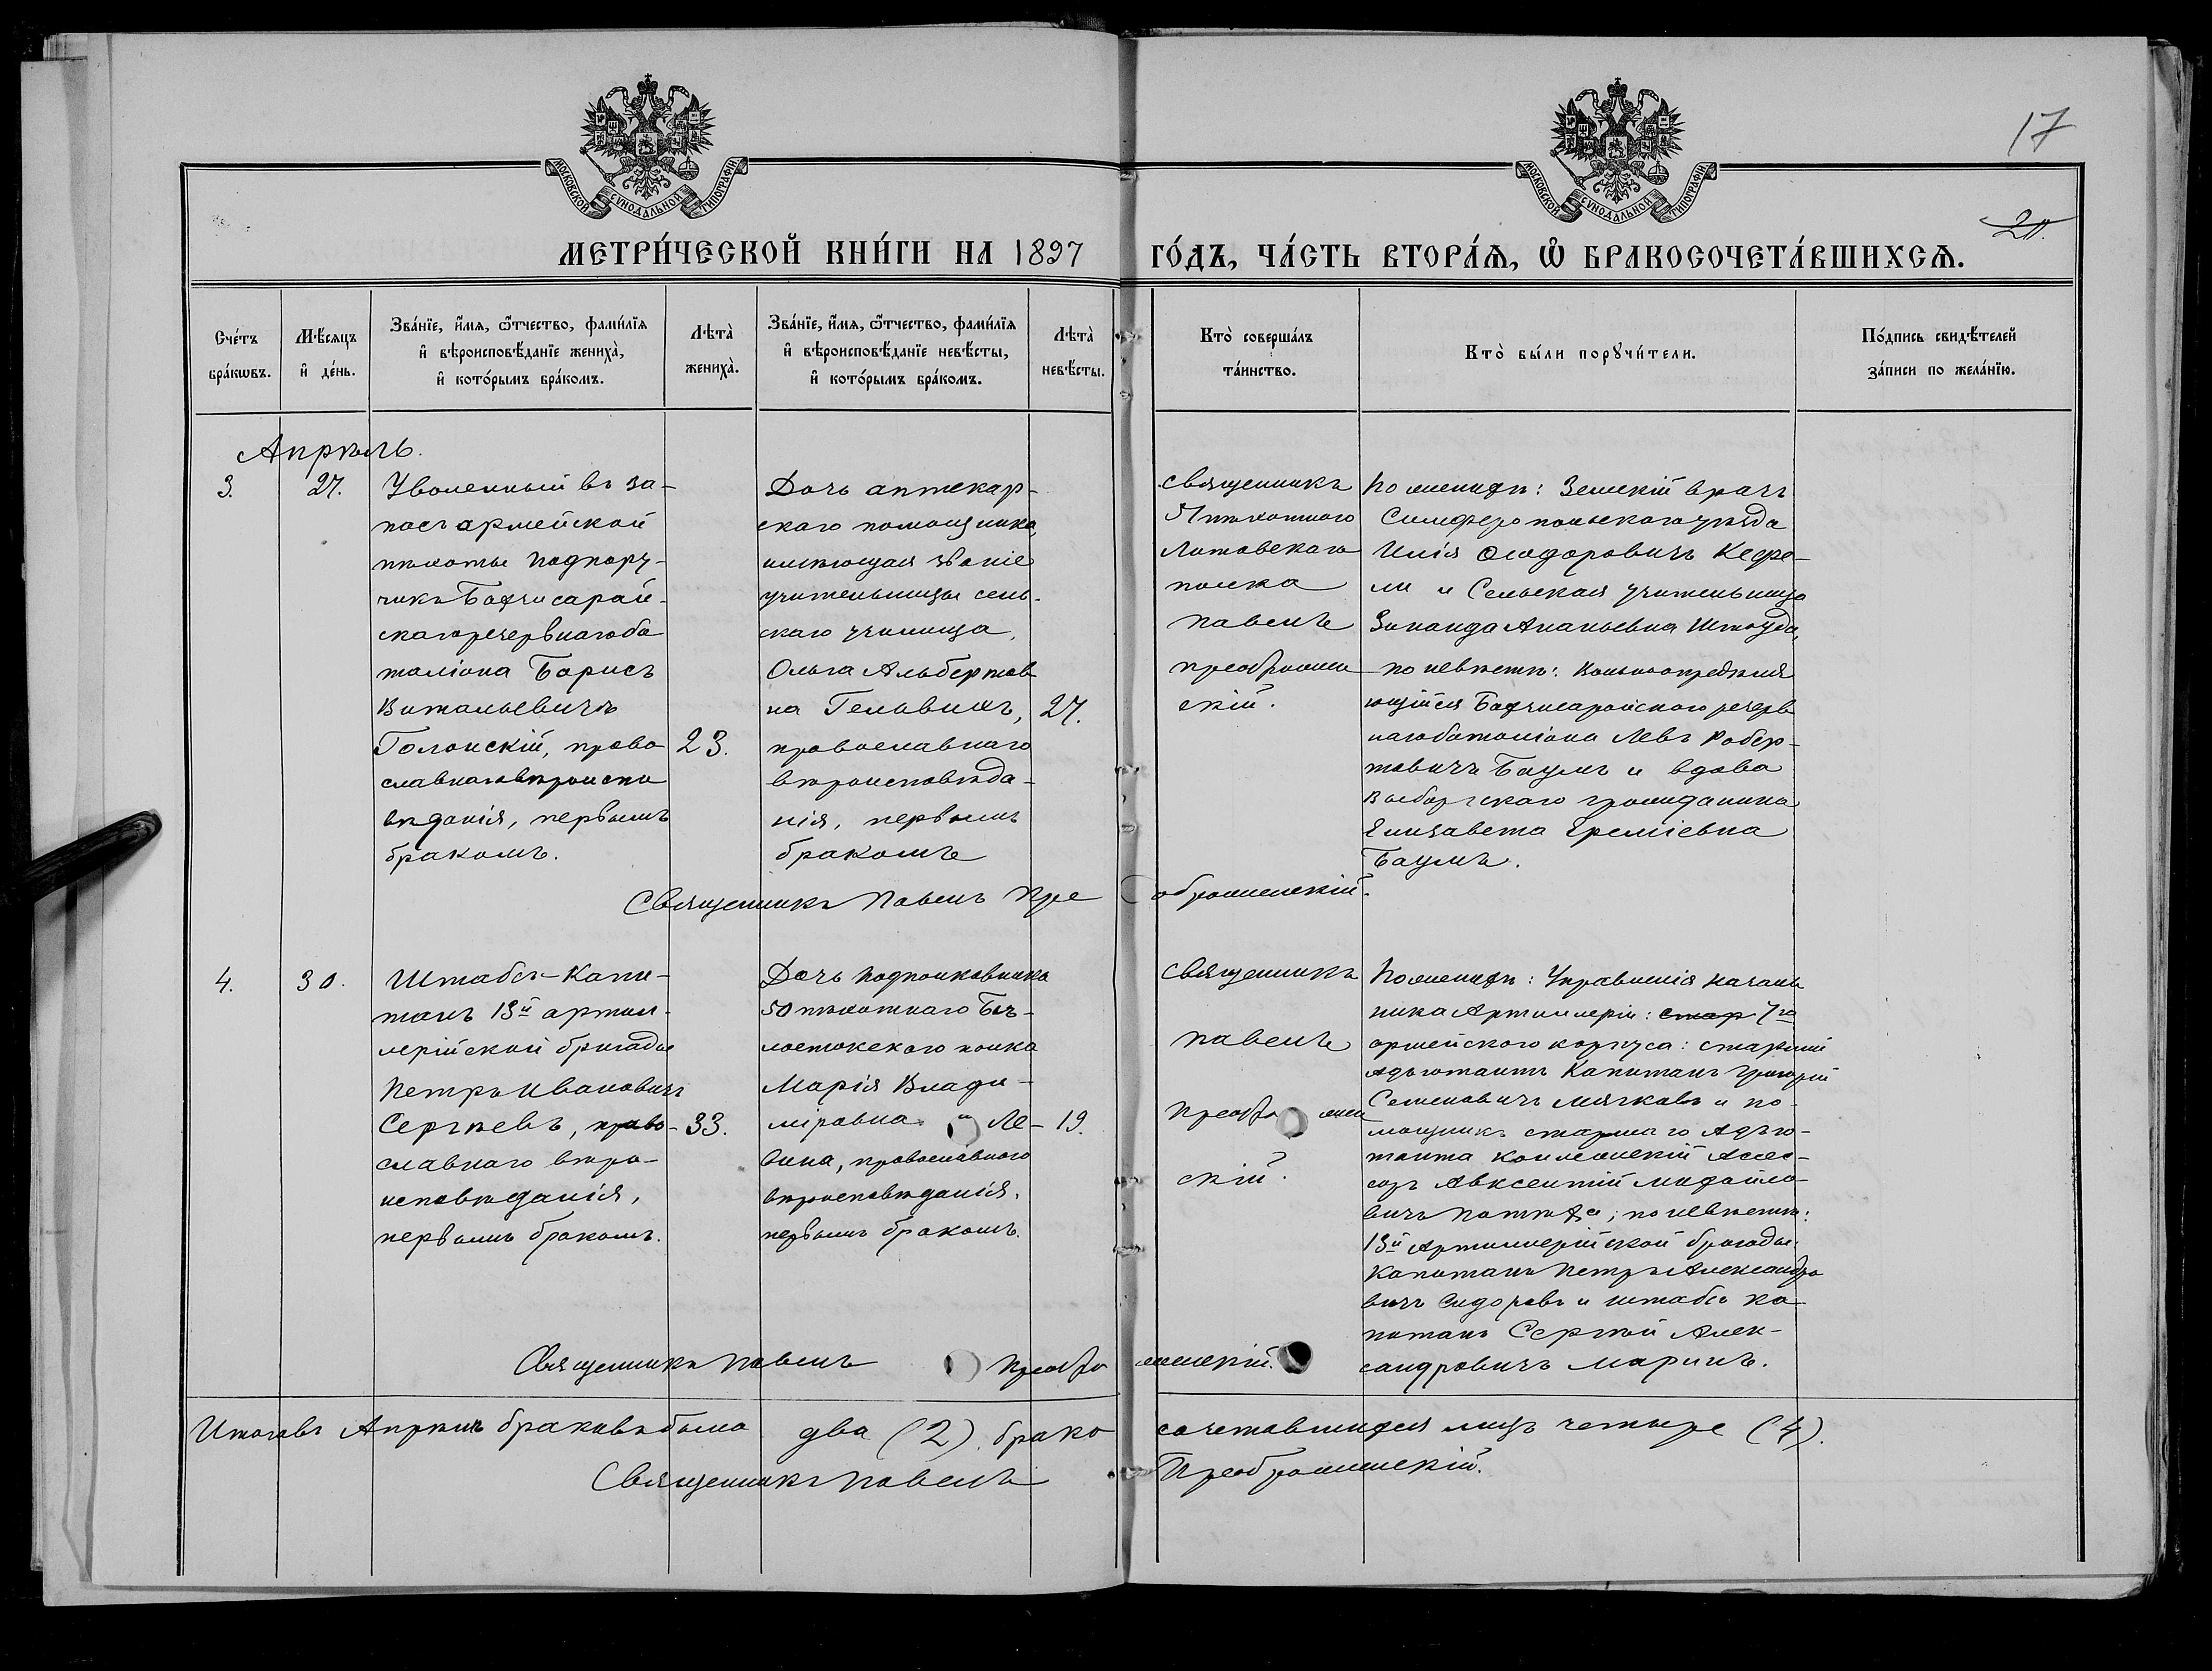 МОСКОВСКОЙ СѴНОДАЛЬНОЙ ТИПОГРАФІИ
МОСКОВСКОЙ СѴНОДАЛЬНОЙ ТИПОГРАФІИ
17
МЕТРИ́ЧЕСКОЙ КНИ́ГИ НА 1897 ГО́ДЪ, ЧА́СТЬ ВТОРА́Я, Ѽ БРАКОСОЧЕТА́ВШИХСЯ.
Сче́тъ
бра́кѡвъ.
Мѣ́сяцъ
и҆ де́нь.
Зва́нїе, и҆́мя, ѻ҆́тчество, фами́лїя
и҆ вѣроисповѣ́данїе жениха̀,
и҆ кото́рымъ бра́комъ.
Лѣта̀
жениха̀.
Зва́нїе, и҆́мя, ѻ҆́тчество, фами́лїя
и҆ вѣроисповѣ́данїе невѣ́сты,
и҆ кото́рымъ бра́комъ.
Лѣта̀
невѣ́сты.
Кто̀ соверша́лъ
та́инство.
Кто̀ бы́ли порꙋчи́тели.
По́дпись свидѣ́телей
за́писи по жела́нїю.
Апрѣль.
3.
27.
Уволенный въ за-
пасъ армейской
пѣхоты подпору-
чикъ Бахчисарай-
скаго резервнаго ба
таліона Борисъ
Витальевичъ
Голонскій, право
славнаго вѣроиспо
вѣданія, первымъ
бракомъ.
23.
Дочь аптекар-
скаго помощника,
имѣющая званіе
учительницы сель-
скаго училища,
Ольга Альбертов
на Гельвихъ,
православнаго
вѣроисповѣда-
нія, первымъ
бракомъ
27.
Священникъ
51 пѣхотнаго
Литовскаго
полка
Павелъ
Преображен
скій.
По женихѣ: Земскій врачъ
Симферопольскаго уѣзда
Илія Ѳеодоровичъ Кефе-
ли и Сельская учительница
Зинаида Ананьевна Штауда,
по невѣстѣ: вольноопредѣля
ющійся Бахчисарайскаго резерв
наго баталіона Левъ Робер-
товичъ Баумъ и вдова
Выборгскаго гражданина
Елизавета Ереміевна
Баумъ.
Священникъ Павелъ Пре ображенскій.
4.
30.
Штабсъ-Капи-
танъ 13й артил-
лерійской бригады
Петръ Ивановичъ
Сергѣевъ, право-
славнаго вѣро-
исповѣданія,
первымъ бракомъ.
33.
Дочь подполковника
50 пѣхотнаго Бѣ-
лостокскаго полка
Марія Влади-
міровна Ле-
вина, православнаго
вѣроисповѣданія,
первымъ бракомъ.
19.
Священникъ
Павелъ
Преображен
скій.
По женихѣ: Управленія началь
ника Артиллеріи: стар 7го
армейскаго корпуса: старшій
Адъютантъ Капитанъ Григорій
Семеновичъ Мягковъ и по-
мощникъ старшаго Адъю-
танта Коллежскій Асес-
соръ Авксентій Михайло-
вичъ; по невѣстѣ:
13й Артиллерійской бригады
Капитанъ Петръ Александро
вичъ Сидоровъ и штабсъ ка
питанъ Сергѣй Алек-
сандровичъ Маринъ.
Священникъ Павелъ Преобра женскій.
Итого въ Апрѣлѣ браковъ было два (2). брако сочетавшихся лицъ четыре (4).
Священникъ Павелъ Преображенскій.